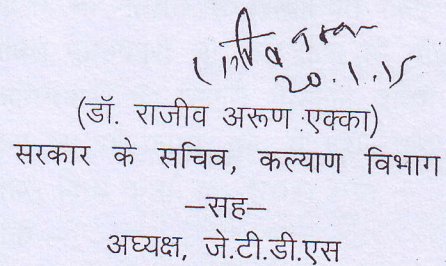 20.1.15
(डॉ. राजीव अरूण एक्का)
सरकार के सचिव, कल्याण विभाग
–सह–
अघ्यक्ष, जे.टी.डी.एस